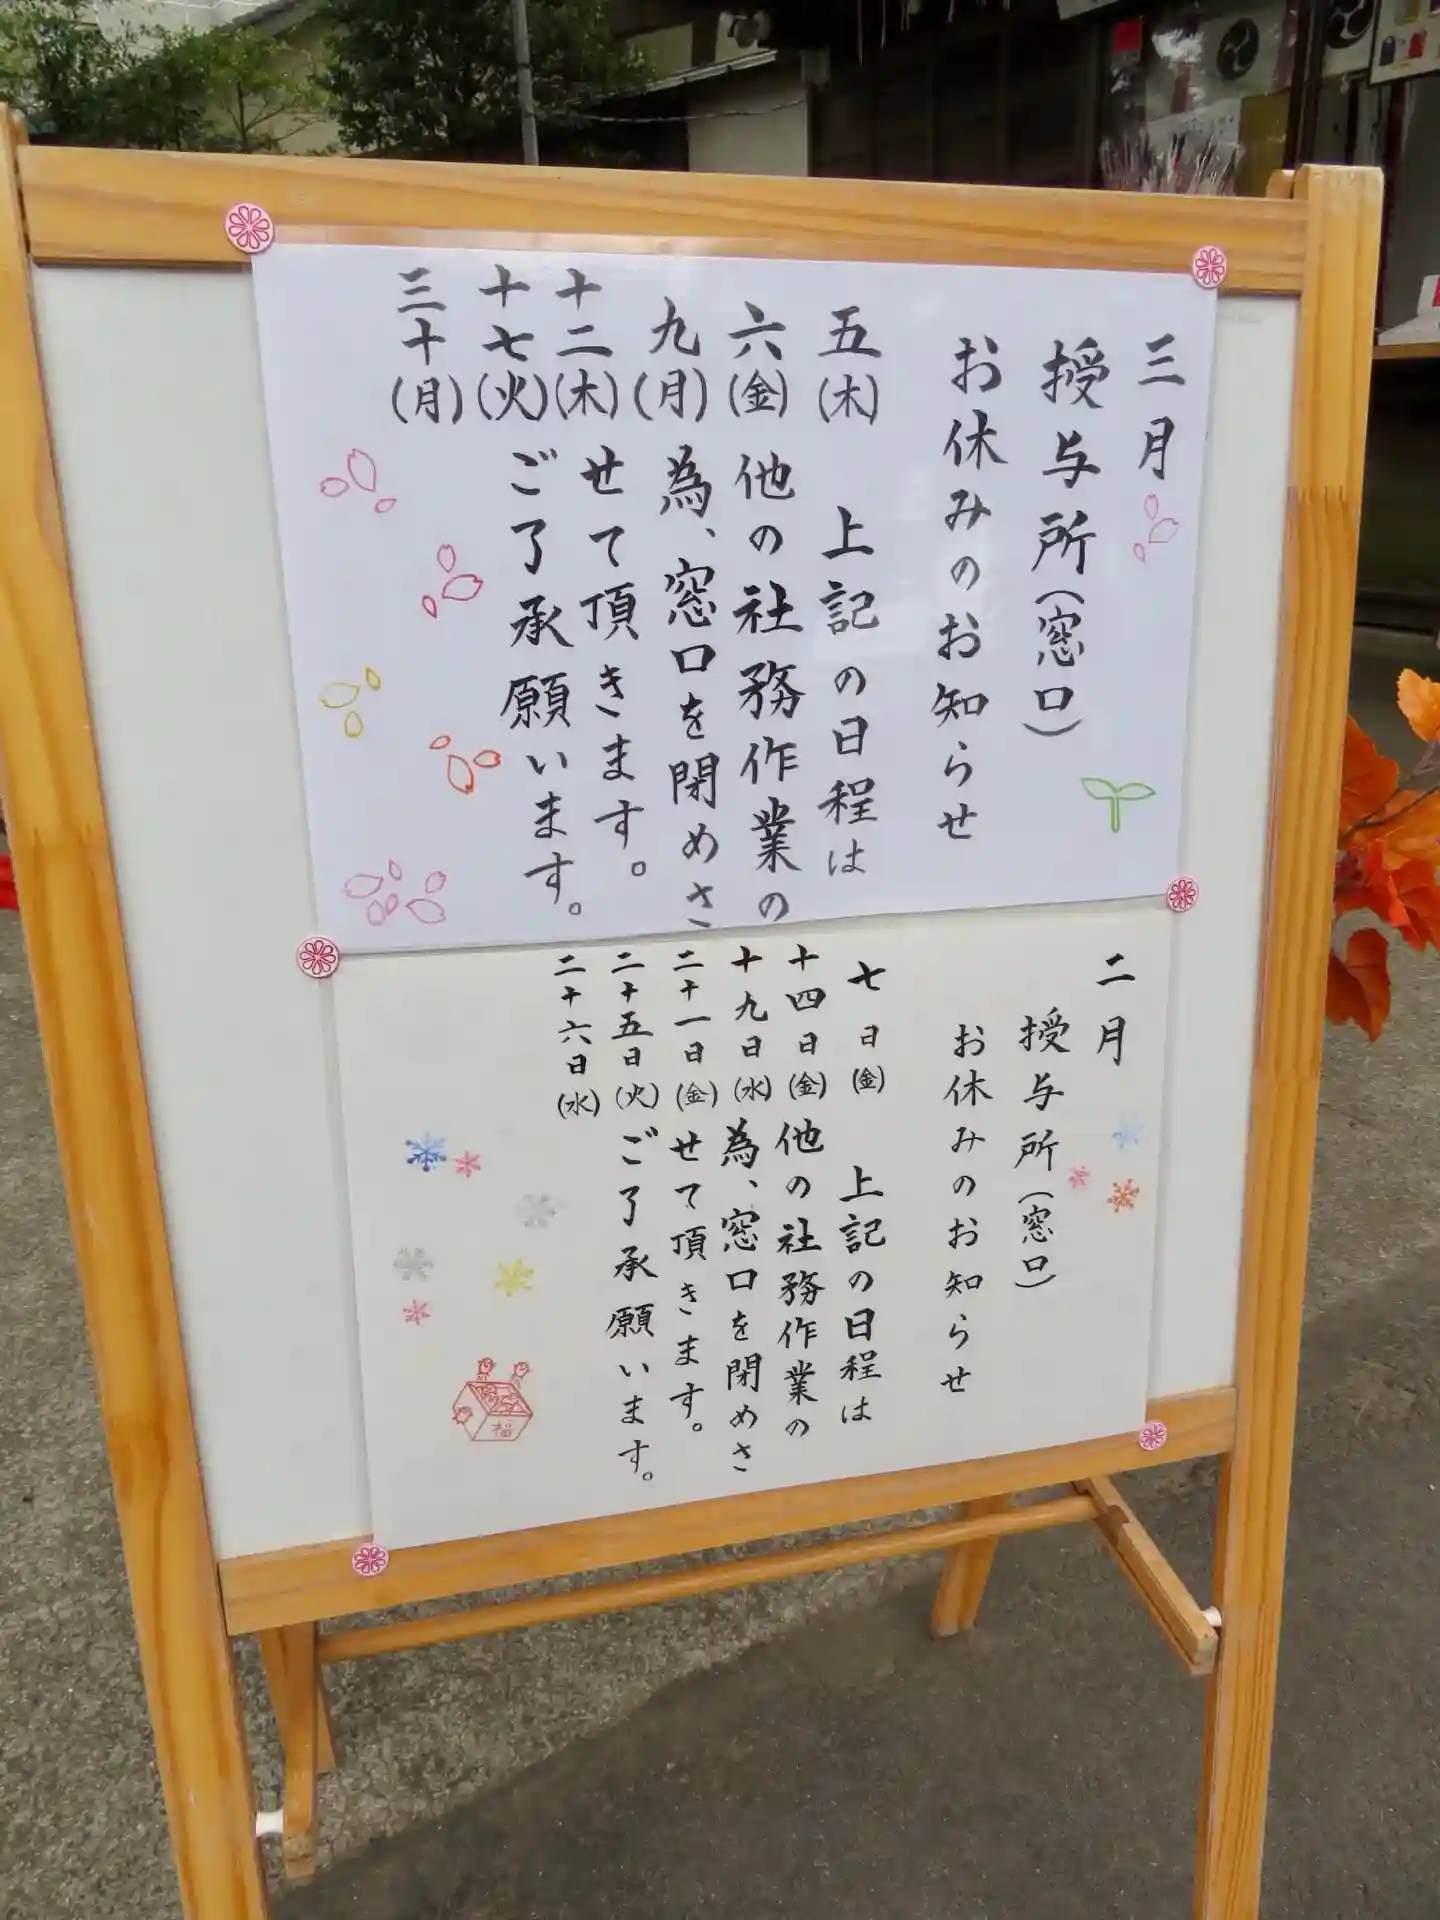 三月
授与所(窓口)
お休みのお知らせ
五(木)
六(金)
九(月)
十二(木)
十七(火)
三十(月)
上記の日程は
他の社務作業の
為、窓口を閉めさ
せて頂きます。
ご了承願います。
二月
授与所(窓口)
お休みのお知らせ
七日(金)
十四日(金)
十九日(水)
二十一日(金)
二十五日(火)
二十六日(水)
上記の日程は
他の社務作業の
為、窓口を閉めさ
せて頂きます。
ご了承願います。
福